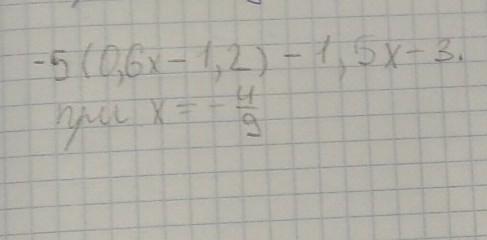 -5(0,6x-1,2)-1,5x-3.
при x=-4/9